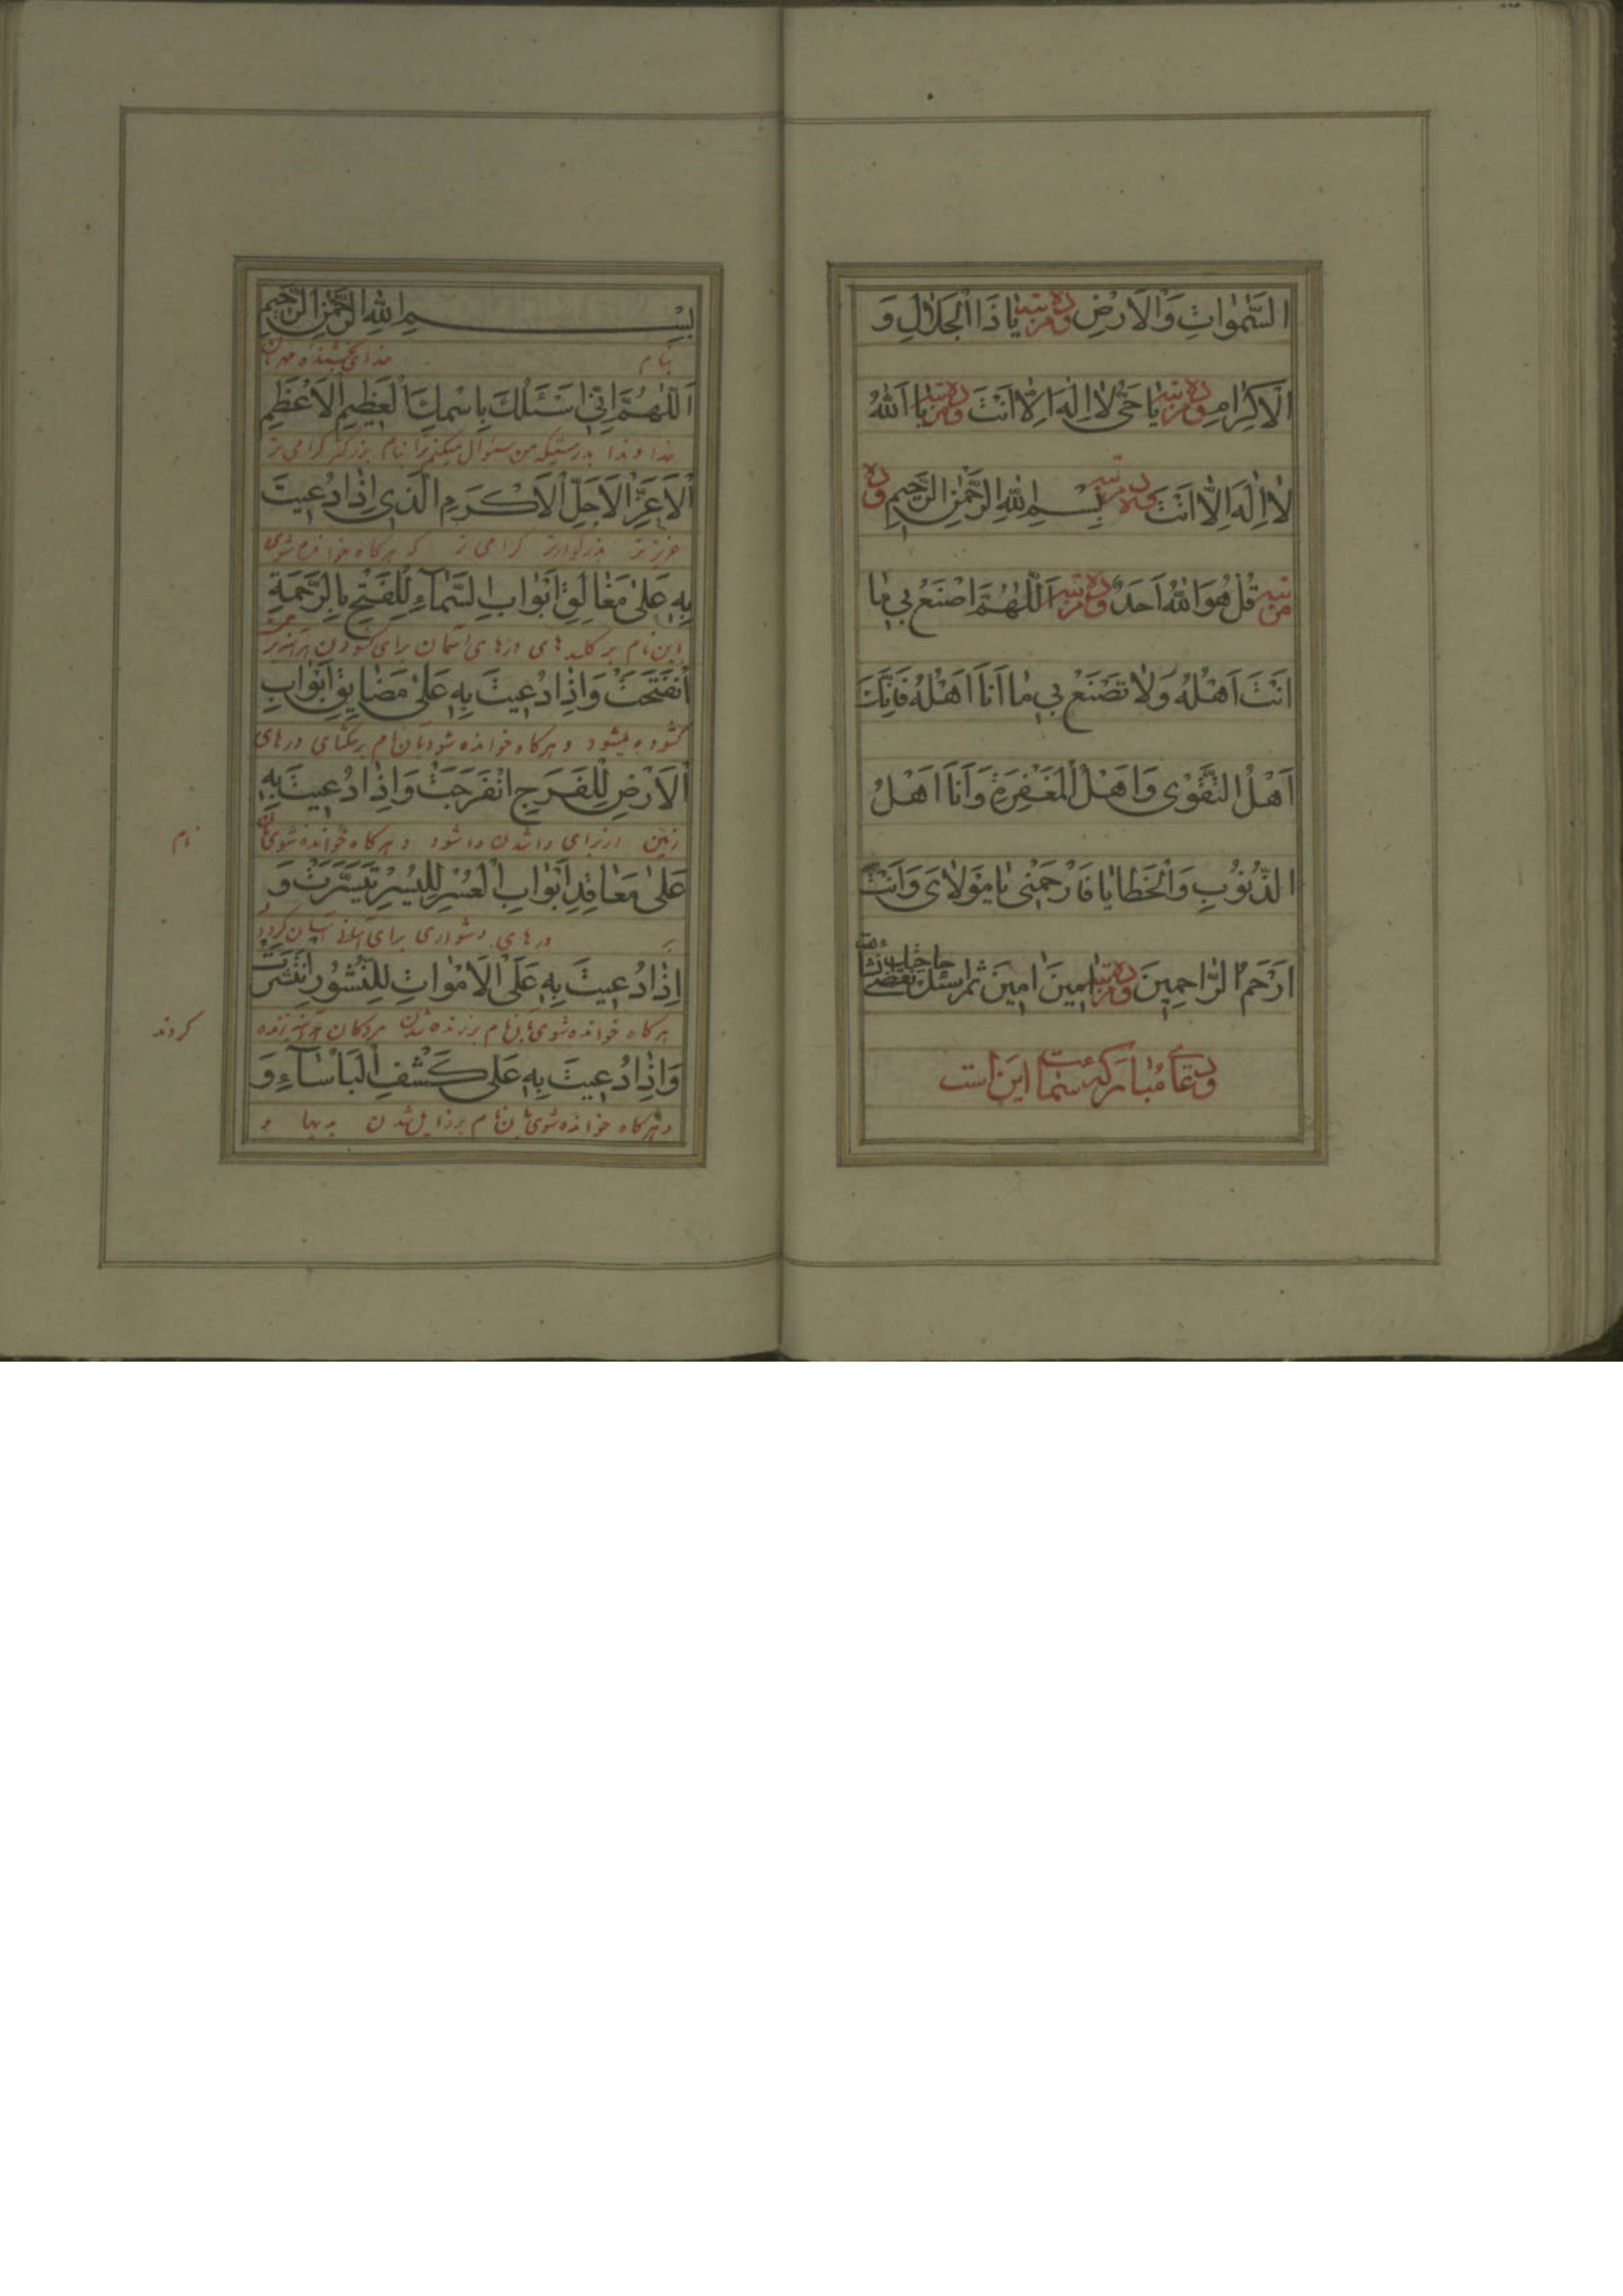 السَّمٰوٰاتِ وَالْاَرْضِ وده مرتبه یٰا ذَا الْجَلٰالِ وَ
الْاَكْرٰامِ وده مرتبه یٰا حَیُّ لٰا اِلٰهَ اِلّٰا اَنْتَ وده مرتبه یٰا اَللّٰهُ
لٰا اِلٰهَ اِلّٰا اَنْتَ وده مرتبه بِسْمِ اللّٰهِ الرَّحْمٰنِ الرَّحیمِ وده
مرتبه قُلْ هُوَ اللّٰهُ اَحَدٌ وده مرتبه اَللّٰهُمَّ اصْنَعْ بی مٰا
اَنْتَ اَهْلُهُ وَلٰا تَصْنَعْ بی مٰا اَنَا اَهْلُهُ فَاِنَّكَ
اَهْلُ التَّقْوٰی وَاَهْلُ الْمَغْفِرَةِ وَاَنَا اَهْلُ
الذُّنُوبِ وَالْخَطٰایٰا فَارْحَمْنی یٰا مَوْلٰایَ وَاَنْتَ
اَرْحَمُ الرّٰاحِمینَ وده مرتبه اٰمینَ اٰمینَ ثم تسئل حاجتك
ودعا مبارکه سمات این است
بِسْمِ اللّٰهِ الرَّحْمٰنِ الرَّحیمِ
بنام خدای بخشنده مهربان
اَللّٰهُمَّ اِنّی اَسْئَلُكَ بِاسْمِكَ الْعَظیمِ الْاَعْظَمِ
خداوندا بدرستیکه من سئوال میکنم ترا بنام بزرکتر کرامی تر
الْاَعَزِّ الْاَجَلِّ الْاَكْرَمِ الَّذی اِذٰا دُعیتَ
عزیز تر بزرکوارتر کرامی تر که هرکاه خوانده شوی
بِهِ عَلٰی مَغٰالِقِ اَبْوٰابِ السَّمٰآءِ لِلْفَتْحِ بِالرَّحْمَةِ
باین نام بر کلیدهای درهای آسمان برای کشودن
انْفَتَحَتْ وَاِذٰا دُعیتَ بِهِ عَلٰی مَضٰایِقِ اَبْوٰابِ
کشوده میشود و هرکاه خوانده شود بآن نام بر تنکنای درهای
الْاَرْضِ لِلْفَرَجِ انْفَرَجَتْ وَاِذٰا دُعیتَ بِهِ
زمین از برای وا شدن وا شود و هرکاه خوانده شوی بآن
نام
عَلٰی مَعٰاقِدِ اَبْوٰابِ الْعُسْرِ لِلْیُسْرِ تَیَسَّرَتْ وَ
بر درهای دشواری برای آسانی آسان کردد
اِذٰا دُعیتَ بِهِ عَلَی الْاَمْوٰاتِ لِلنُّشُورِ انْتَشَرَتْ
هرکاه خوانده شوی بآن نام بر زنده شدن مردکان زنده
کردند
وَاِذٰا دُعیتَ بِهِ عَلٰی كَشْفِ الْبَأْسٰآءِ وَ
و هرکاه خوانده شوی بآن نام بر زایل شدن بدیها و